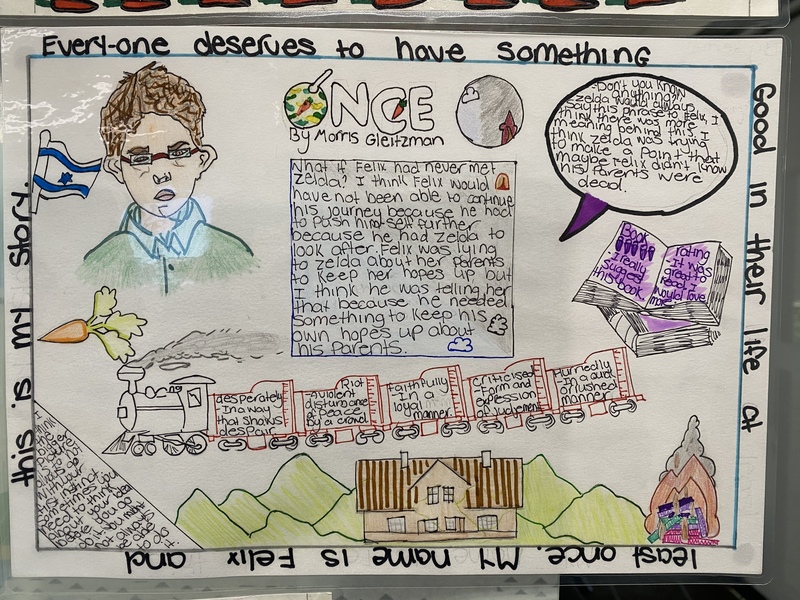 Every-one deserves to have something
Good in their life at
least once. My name is Felix and
this is my story.
ONCE
By Morris Gleitzman
What if Felix had never met
Zelda? I think Felix would
have not been able to continue
his journey because he had
to Push himself further
because he had Zelda to
look after. Felix was lying
to Zelda about her parents
to keep her hopes up but
I think he was telling her
that because he needed
something to keep his
own hopes up about
his Parents.
-Don't you know
anything?
Zelda would always
say this phrase to Felix, I
think there is more
meaning behind this. I
think zelda was trying
to make a Point that
maybe Felix didn't know
his Parents were
dead.
Book
I really
suggest
this book.
rating
It was
great to
read I
would love
more
desperately
In a way
that shows
despair
Riot
A violent
disturbance
of peace
by a crowd
Faithfully
In a
loyal
manner
Criticised
form and
expression
of judgement
Hurriedly
In a quick
or rushed
manner
I
think